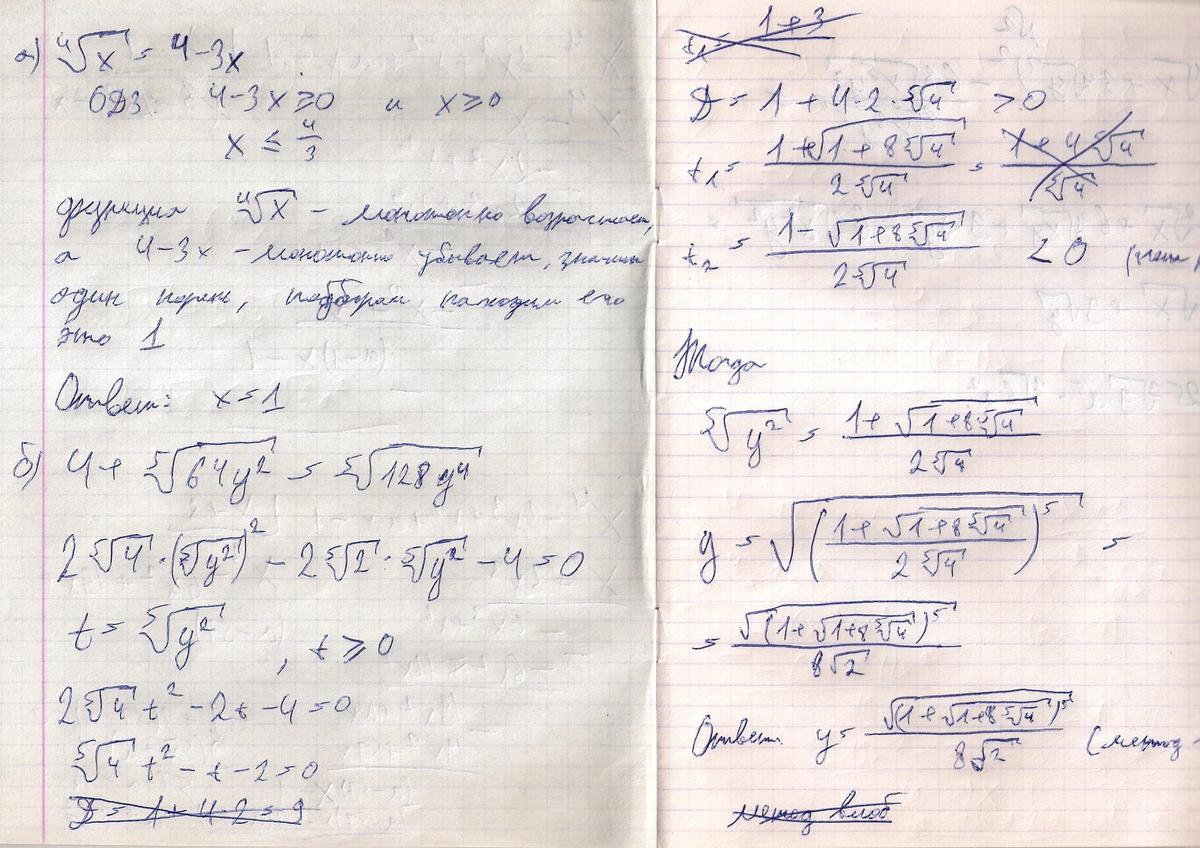 а) ⁴√x = 4-3x
ОДЗ: 4-3x ≥ 0 и x ≥ 0
x ≤ 4/3
функция ⁴√x - монотонно возрастает,
а 4-3x - монотонно убывает, значит
один корень, подбором находим его
это 1
Ответ: x=1
б) 4 + ⁵√(64y²) = ⁵√(128y⁴)
2⁵√4 · (⁵√y²)² - 2⁵√2 · ⁵√y² - 4 = 0
t = ⁵√y² , t ≥ 0
2⁵√4 t² - 2t - 4 = 0
⁵√4 t² - t - 2 = 0
D = 1 + 4·2 = 9
t₁ = 1+3
D = 1 + 4·2·⁵√4 > 0
t₁ = (1+√(1+8⁵√4))/(2⁵√4) = (1+4⁵√4)/(⁵√4)
t₂ = (1-√(1+8⁵√4))/(2⁵√4) < 0
Тогда
⁵√y² = (1+√(1+8⁵√4))/(2⁵√4)
y = √(((1+√(1+8⁵√4))/(2⁵√4))⁵) =
= √((1+√(1+8⁵√4))⁵)/(8√2)
Ответ: y = √((1+√(1+8⁵√4))⁵)/(8√2) (метод -
метод влоб